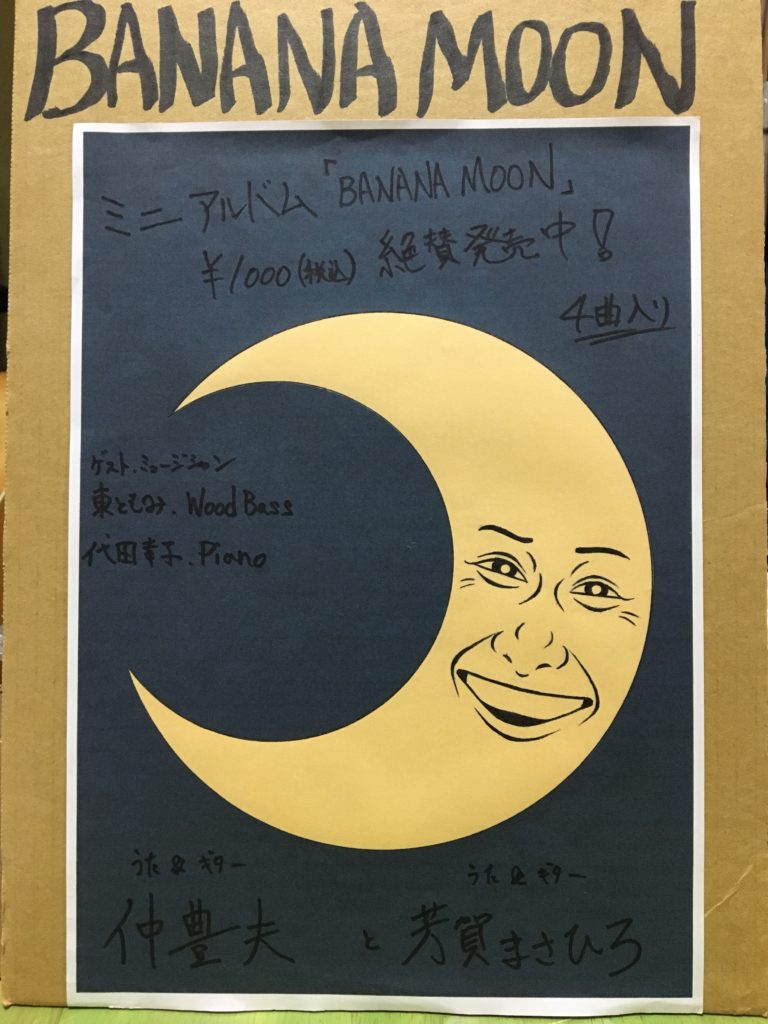 BANANA MOON
ミニアルバム「BANANA MOON」
¥1000(税込) 絶賛発売中!
4曲入り
ゲスト.ミュージシャン
東ともみ.Wood Bass
代田幸子.Piano
うた & ギター
うた & ギター
仲豊夫 と 芳賀まさひろ